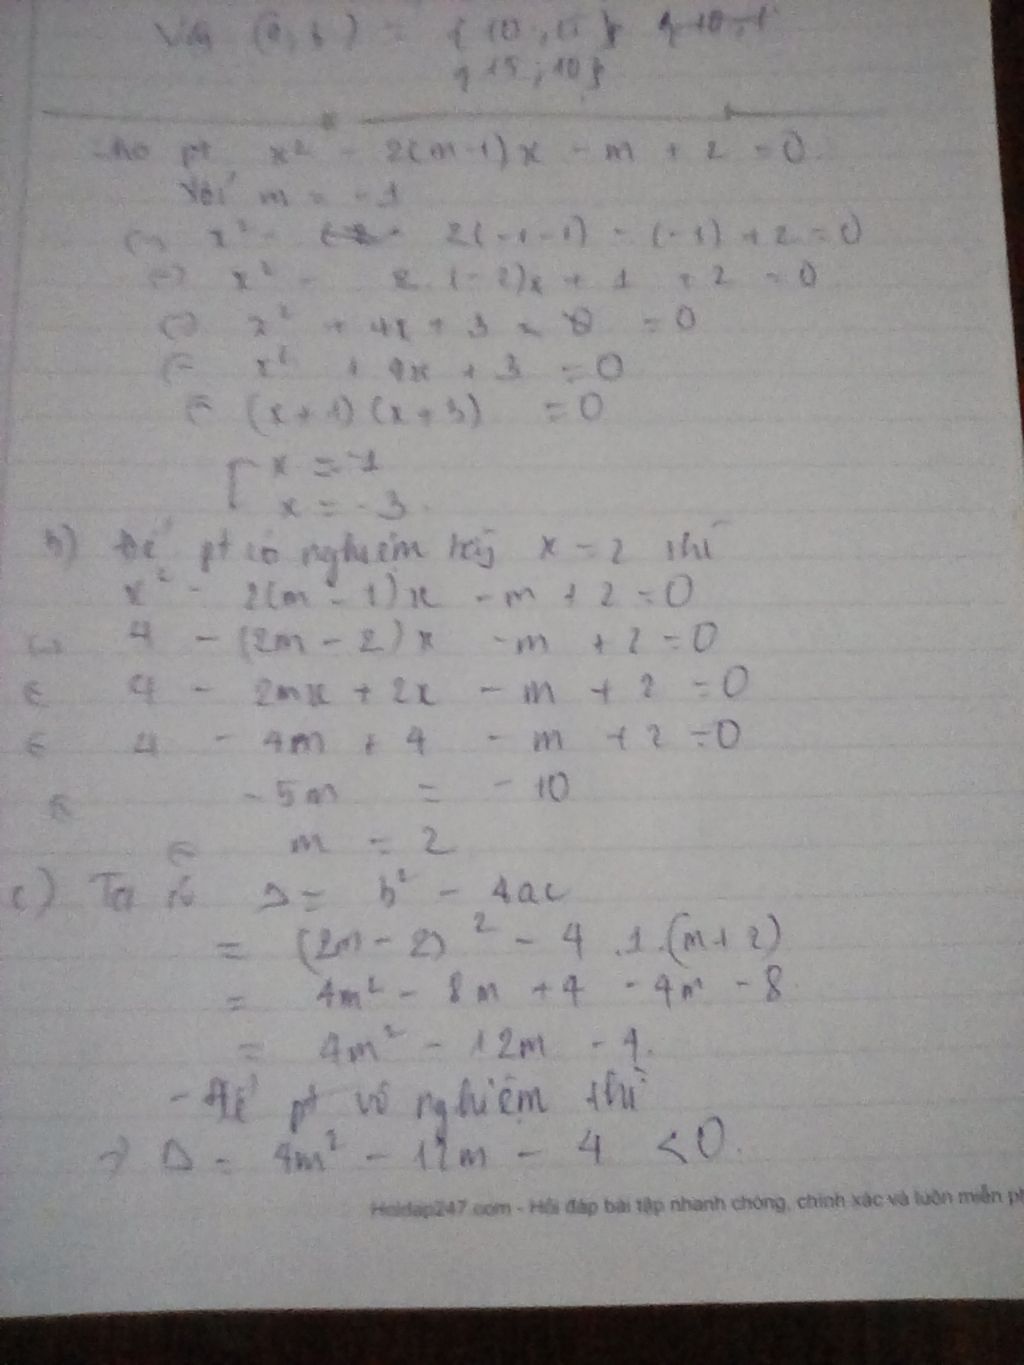 Vậy (a, b) = { 10 ; 15 }
{ 15 ; 10 }
pt x² - 2(m-1)x - m + 2 = 0
Với m = -1
x² - 2(-1-1) - (-1) + 2 = 0
x² - 2 (-2)x + 1 + 2 = 0
x² + 4x + 3 = 0
x² + 4x + 3 = 0
(x+1)(x+3) = 0
x = -1
x = -3.
b) Để pt có nghiệm x = 2 thì
x² - 2(m-1)x - m + 2 = 0
4 - (2m - 2)x - m + 2 = 0
4 - 2mx + 2x - m + 2 = 0
4 - 4m + 4 - m + 2 = 0
-5m = -10
m = 2
c) Ta có Δ = b² - 4ac
= (2m - 2)² - 4 .1.(m+2)
= 4m² - 8m + 4 - 4m - 8
= 4m² - 12m - 4.
- Để pt vô nghiệm thì
Δ = 4m² - 12m - 4 < 0.
Hoidap247.com - Hỏi đáp bài tập nhanh chóng, chính xác và luôn miễn ph